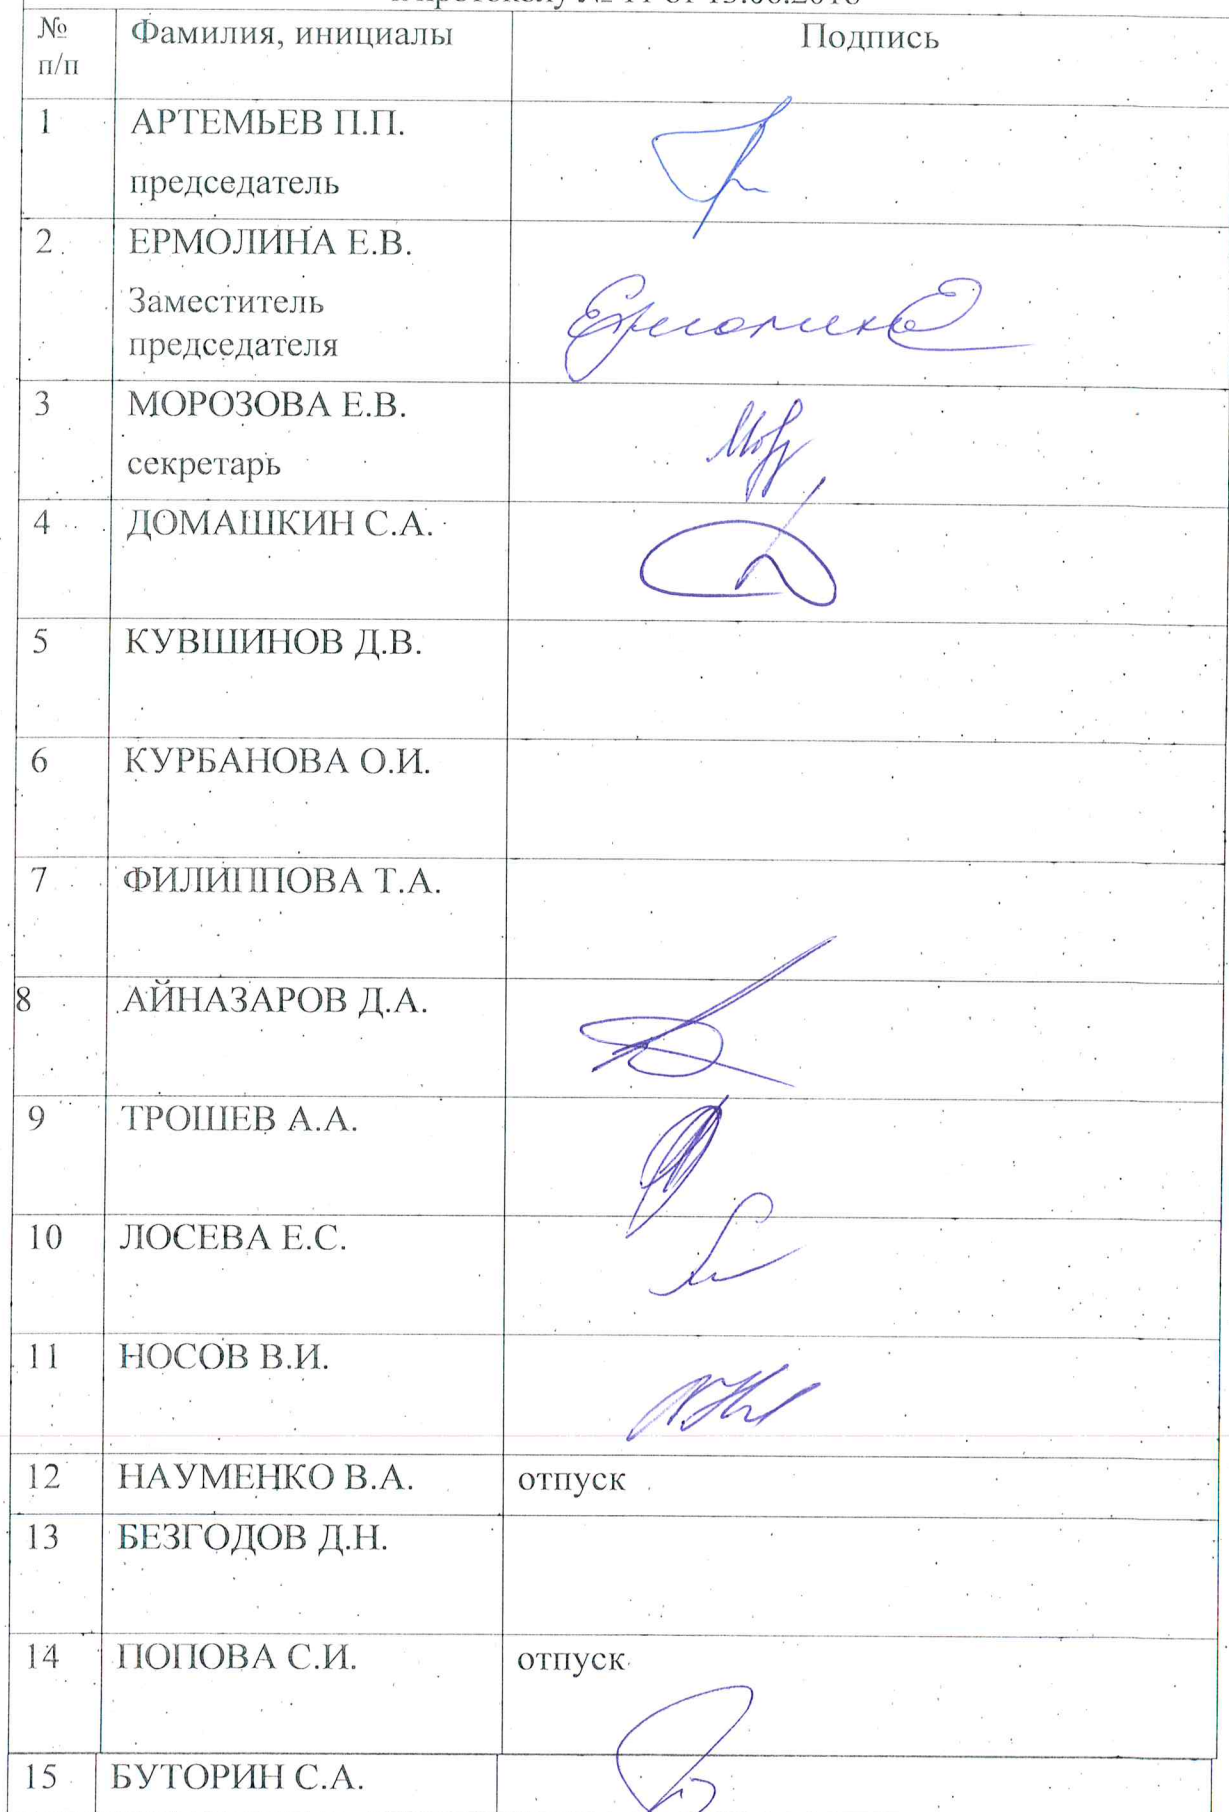 № Фамилия, инициалы Подпись
п/п
1 АРТЕМЬЕВ П.П.
председатель
2 ЕРМОЛИНА Е.В.
Заместитель
председателя
Ермолина
3 МОРОЗОВА Е.В.
секретарь
4 ДОМАШКИН С.А.
5 КУВШИНОВ Д.В.
6 КУРБАНОВА О.И.
7 ФИЛИППОВА Т.А.
8 АЙНАЗАРОВ Д.А.
9 ТРОШЕВ А.А.
10 ЛОСЕВА Е.С.
11 НОСОВ В.И.
12 НАУМЕНКО В.А. отпуск
13 БЕЗГОДОВ Д.Н.
14 ПОПОВА С.И. отпуск
15 БУТОРИН С.А.